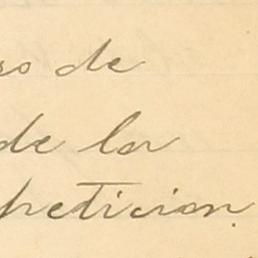 so de
de la
peticion.